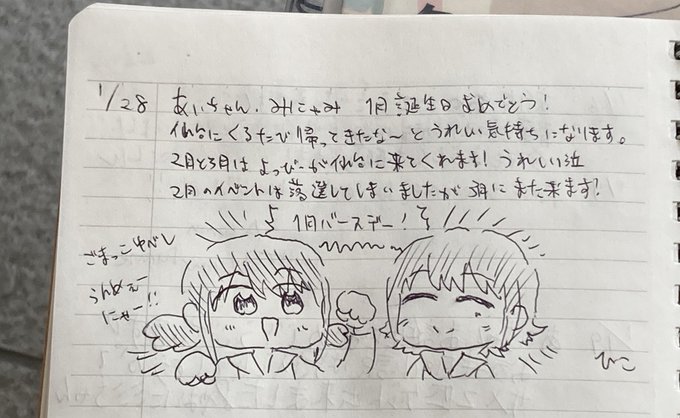 1/28
あいちゃん、みにゃみ 1月誕生日おめでとう!
仙台にくるたび帰ってきたな〜とうれしい気持ちになります。
2月と3月はよっぴーが仙台に来てくれます! うれしい泣
2月のイベントは落選してしまいましたが3月にまた来ます!
1月バースデー!
ごまっこゆべし
うんめぇー
にゃー!!
ひこ